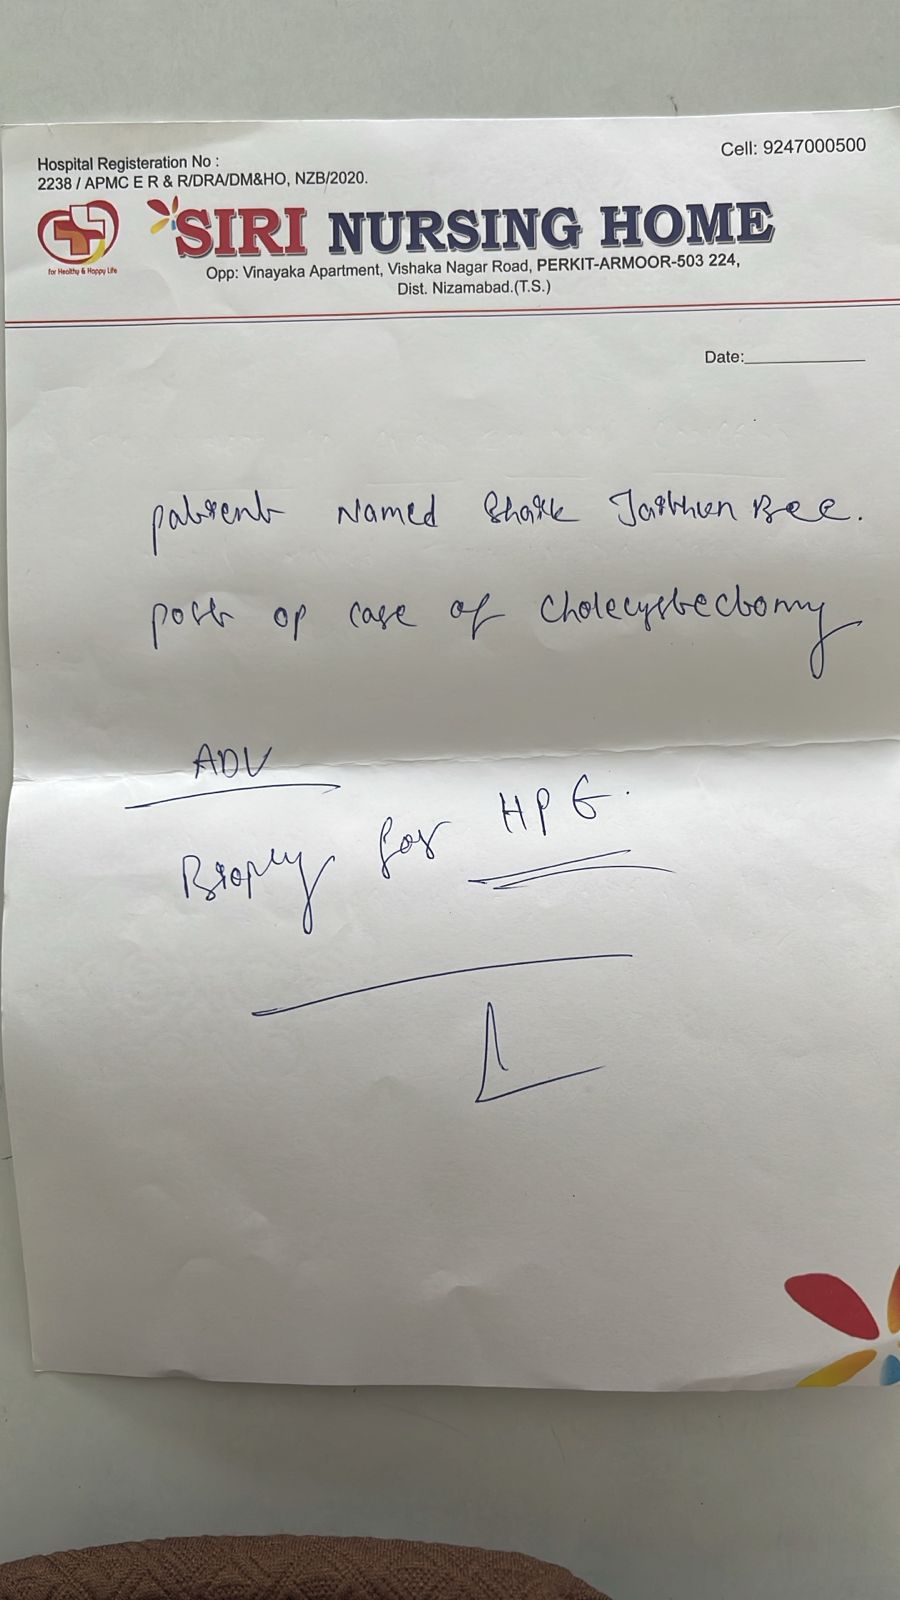 Hospital Registeration No :
Cell: 9247000500
2238 / APMC E R & R/DRA/DM&HO, NZB/2020.
SIRI NURSING HOME
for Healthy & Happy Life
Opp: Vinayaka Apartment, Vishaka Nagar Road, PERKIT-ARMOOR-503 224,
Dist. Nizamabad.(T.S.)
Date:
patient Named Shaik Jaithun Bee.
post op case of cholecystectomy
ADV
Biopsy for HPE.